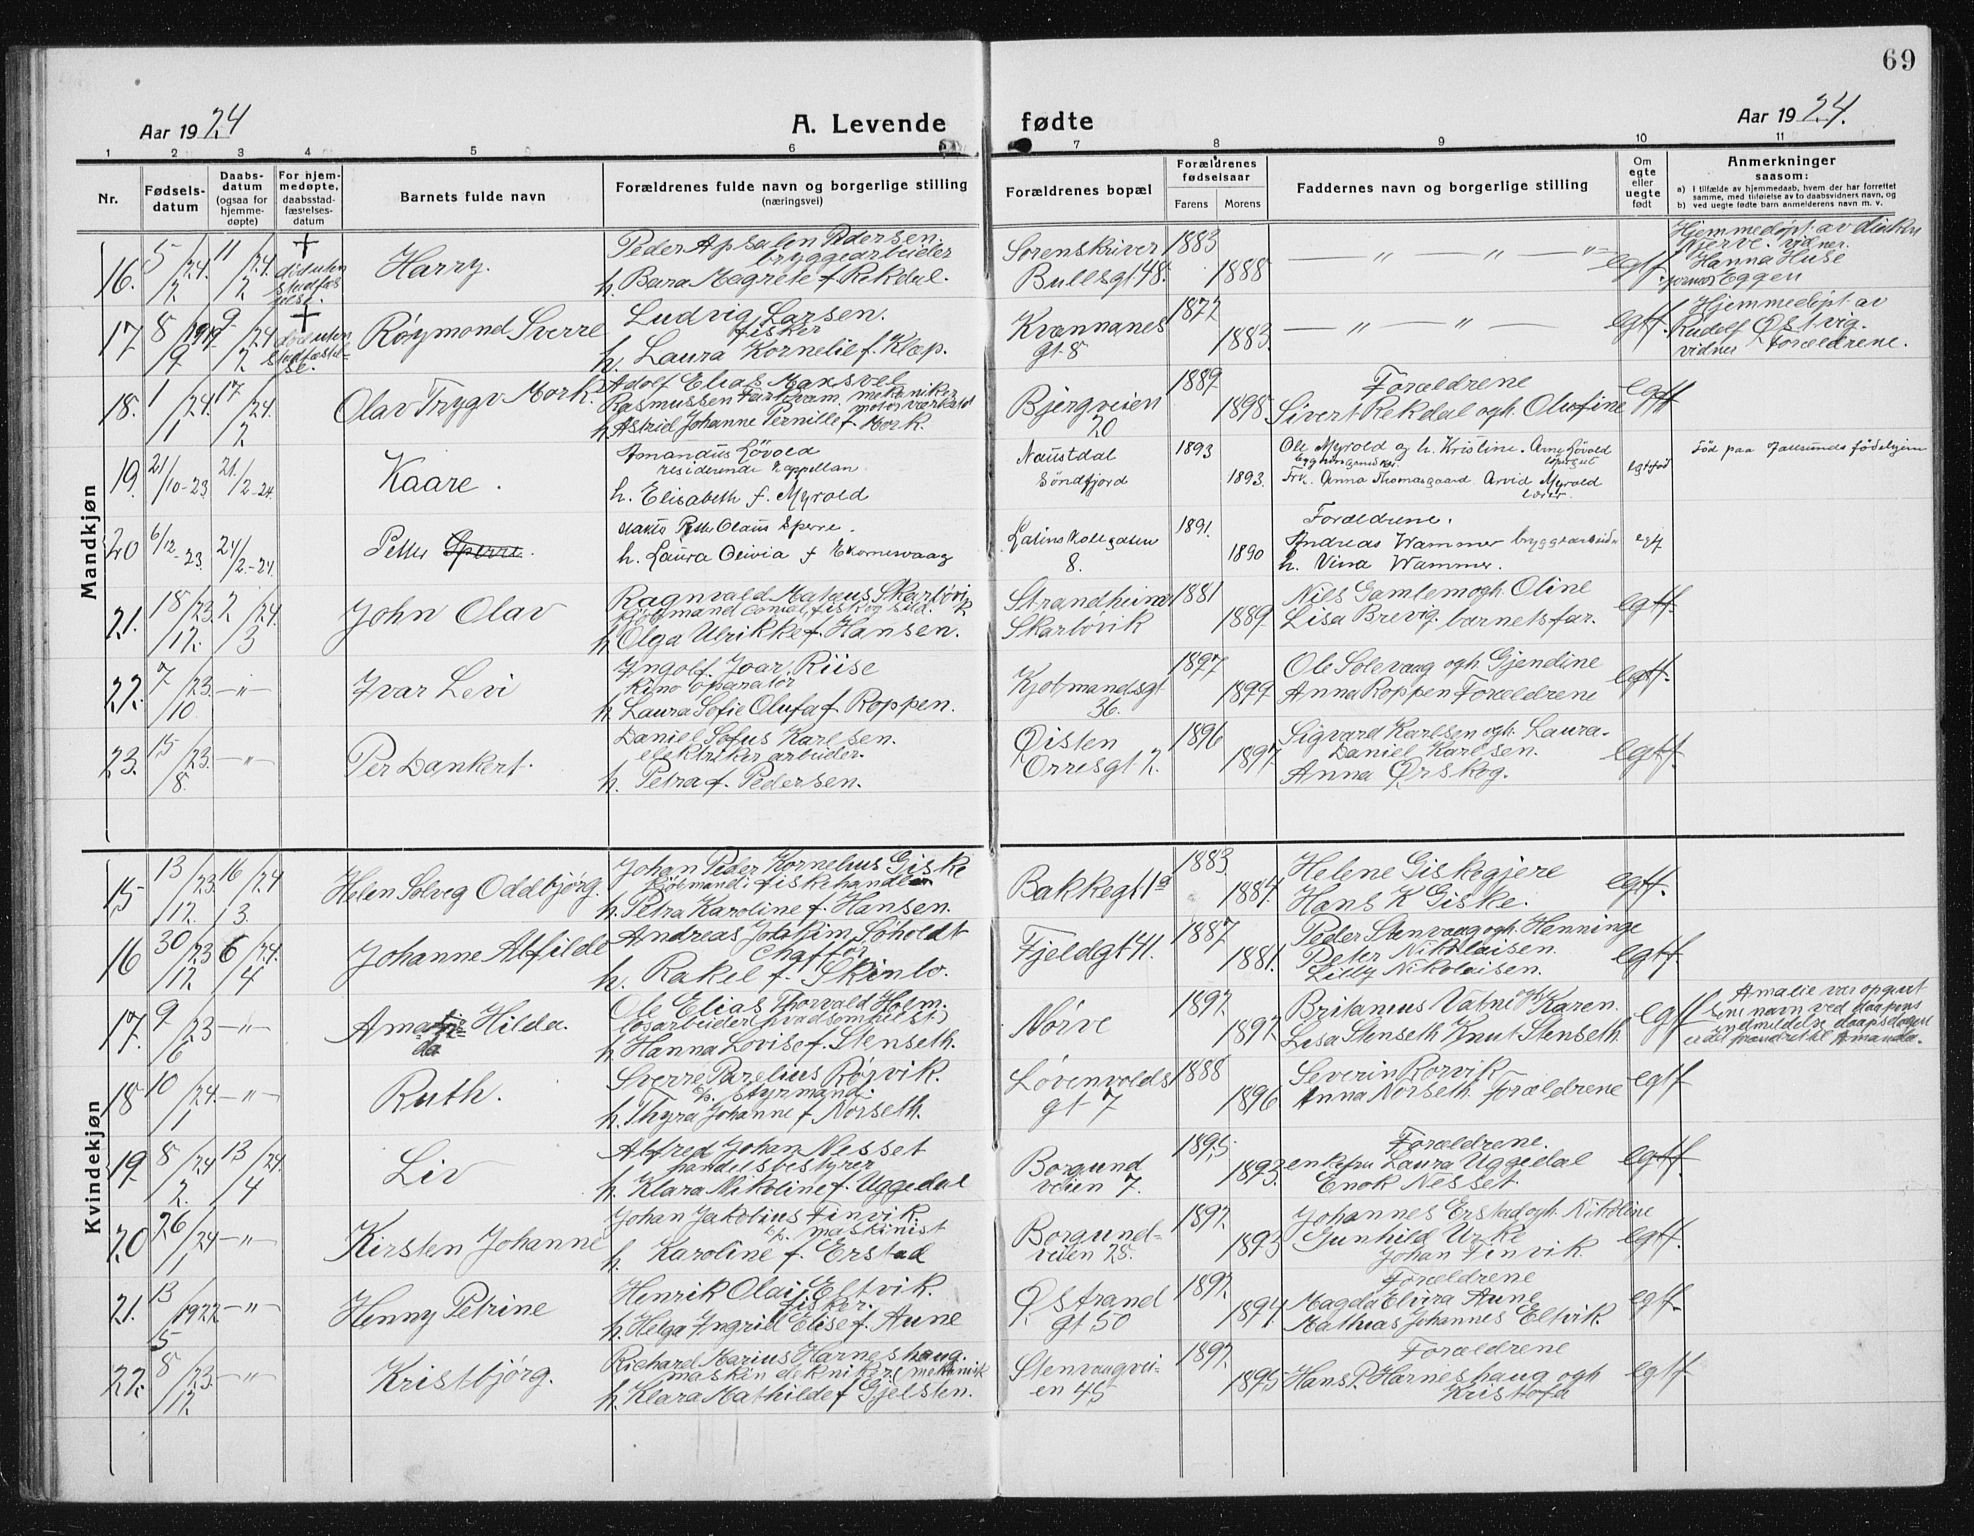 69
Aar 19 24
A. Levende fødte
Aar 19 24.
1 2 3 4 5 6 7 8 9 10 11
Nr.
Fødsels-
datum
Daabs-
datum
(ogsaa for
hjemme-
døpte)
For hjem-
medøpte,
daabsstad-
fæstelses-
datum
Barnets fulde navn
Forældrenes fulde navn og borgerlige stilling
(næringsvei)
Forældrenes bopæl
Forældrenes
fødselsaar
Farens Morens
Faddernes navn og borgerlige stilling
Om
egte
eller
uegte
født
Anmerkninger
saasom:
a) i tilfælde av hjemmedaab, hvem der har forrettet
samme, med tilføielse av to daabsvidners navn, og
b) ved uegte fødte barn anmelderens navn m. v.
Mandkjøn
16. 5/2 24. 11/2 24. + død uten stadfæs
Harry.
Peder Apsalon Pedersen.
bryggearbeider
h. Bara Megrete f. Rekdal.
Sorenskriver
Bullsgt 48.
1883
1888
— " — " — " —
egtf.
Hjemmedøpt av
Njerve. vidner.
Hanna Huse
Eggen
17 8/9 19 9/2 24 + død uten
Røymond Sverre
Ludvig Larsen.
fisker
h. Laura Kornelie f. Klæp.
Kvænnanes
gt 8
1872
1883.
— " — " —
egtf.
Hjemmedøpt av
Rudolf Østvig.
vidner Forældrene.
18. 1/1 24. 17/2 24.
Olav Trygv Mork.
Adolf Elias Maxsvel
Rasmussen mekaniker
h. Astrid Johanne Pernille f. Mork.
Bjergveien
20
1889
1898
Forældrene
Sivert Rekdal og h. Olufine
egtf
19. 21/10-23 21./2-24
Kaare.
Amandus Løvold
residerende kappellan.
h. Elisabeth f. Myrold
Naustdal
Søndfjord
1893
1893.
Ole Myrold og h. Kristine. Arne Løvold
Frk. Anna Thomasgaard Arvid Myrold
egtefød
Fød paa
20 6/12-23. 24/2-24.
Petter Sperre.
Petter Olaus Sperre.
h. Laura Olivia f. Ekornesvaag
Latinskolegaten
8.
1891.
1890
Forældrene.
Andreas Wammer bryggearbeid.
h. Vina Wammer.
egtf
21. 18/12. 23. 2/3 24.
John Olav
Ragnvald Mataus Skarbøvik
h. Olga Ulrikke f. Hansen.
Strandheim
Skarbøvik
1881
1889.
Nils Gamlem og h. Oline
Lisa Brevig. barnets far.
egtf.
22. 7/10 23. — " —
Ivar Levi
Ingolf Ivar Riise
kino operatør
h. Laura Sofie Olufa f. Roppen.
Kjøbmandsgt
36.
1897
1899
Ole Solevaag og h. Gjendine
Anna Roppen Forældrene
egtf.
23. 15/8. 23. — " —
Per Dankert.
Daniel Sofus Karlsen.
elektriker arbeider.
h. Petra f. Pedersen.
Øisten
Orresgt 2.
1896
1897.
Sigvard Karlsen og h. Laura.
Daniel Karlsen.
Anna Ørskog.
egtf.
Kvindekjøn
15 13/12. 23. 16/3. 24
Helen Solveg Oddbjørg.
Johan Peder Kornelius Giske
kjøbmand i fiskehandel
h. Petra Karoline f. Hansen.
Bakkegt 1a
1883.
1884.
Helene Giskegjere
Hans K Giske.
egtf.
16 30/12. 23 6/4 24.
Johanne Alfilde
Andreas Joakim Søholdt
Chaffør
h. Rakel f. Skinlo.
Fjeldgt 41.
1887
1881.
Peder Stenvaag og h. Henninge
Peter Nikolaisen.
Lilly Nikolaisen.
egtf.
17. 9/6 23 — " —
Amalie Hilda.
da
Ole Elias Thorvald Holm.
løsarbeider (hvadsomhelst)
h. Hanna Lovise f. Stenseth.
Nørve
1897.
1897.
Britanius Vatne og h. Karen.
Lisa Stenseth Knut Stenseth.
egtf
Amalie var opgivt
som navn ved daapens
indmeldelse daapsdagen
er det forandret til Amanda.
18 10/1 24. — " —
Ruth.
Sverre Parelius Rørvik.
styrmand.
h. Thyra Johanne f. Norseth.
Løvenvolds
gt 7
1888
1896
Severin Rorvik
Anna Norseth. forældrene
egtf
19. 8/2. 24 13/4 24.
Liv
Alfred Johan Nesset
handelsbestyrer
h. Klara Nikoline f. Uggedal
Borgund
veien 7.
1895.
1893.
Forældrene.
enkefru Laura Uggedal
Enok Nesset
egtf
20 26/1 24 — " —
Kirsten Johanne
Johan Jakobius Finvik
maskinist
h. Karoline f. Erstad
Borgund-
veien 28.
1897.
1893
Johannes Erstad og h. Nikoline
Gunhild Urke
Johan Finvik.
egtf.
21. 13/5 1922 — " —
Henny Petrine
Henrik Olai Eltvik.
fisker.
h. Helga Ingrid Elise f. Aune
Østrand
gt 50
1897.
1894.
Forældrene
Magda Elvira Aune
Mathias Johannes Eltvik.
egtf.
22. 8/12. 23. — " —
Kristbjørg.
Richard Marius Harneshaug.
maskindekniker (mekanik
h. Klara Mathilde f. Gjelsten.
Stenvaagvei-
en 45
1897.
1895
Forældrene
Hans P. Harneshaug og h
Kristofa
egtf